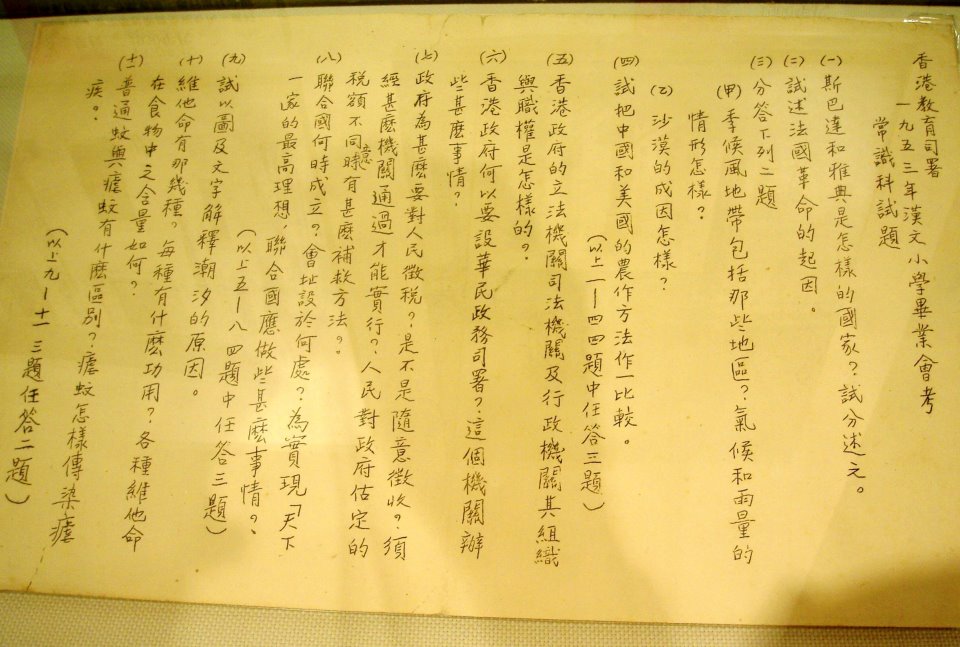 香港教育司署
一九五三年漢文小學畢業會考
常識科試題
(一) 斯巴達和雅典是怎樣的國家?試分述之。
(二) 試述法國革命的起因。
(三) 分答下列二題
(甲) 季候風地帶包括那些地區?氣候和雨量的
情形怎樣?
(乙) 沙漠的成因怎樣?
(四) 試把中國和美國的農作方法作一比較。
(以上一—四四題中任答三題)
(五) 香港政府的立法機關司法機關及行政機關其組織
與職權是怎樣的?
(六) 香港政府何以要設華民政務司署?這個機關辦
些甚麽事情?
(七) 政府為甚麽要對人民徵稅?是不是隨意徵收?須
經甚麽機關通過才能實行?人民對政府估定的
稅額不同意時有甚麽補救方法?
(八) 聯合國何時成立?會址設於何處?為實現「天下
一家的最高理想,聯合國應做些甚麽事情?
(以上五—八四題中任答三題)
(九) 試以圖及文字解釋潮汐的原因。
(十) 維他命有那幾種?每種有什麽功用?各種維他命
在食物中之含量如何?
(十一) 普通蚊與瘧蚊有什麽區別?瘧蚊怎樣傳染瘧
疾。
(以上九—十一三題任答二題)